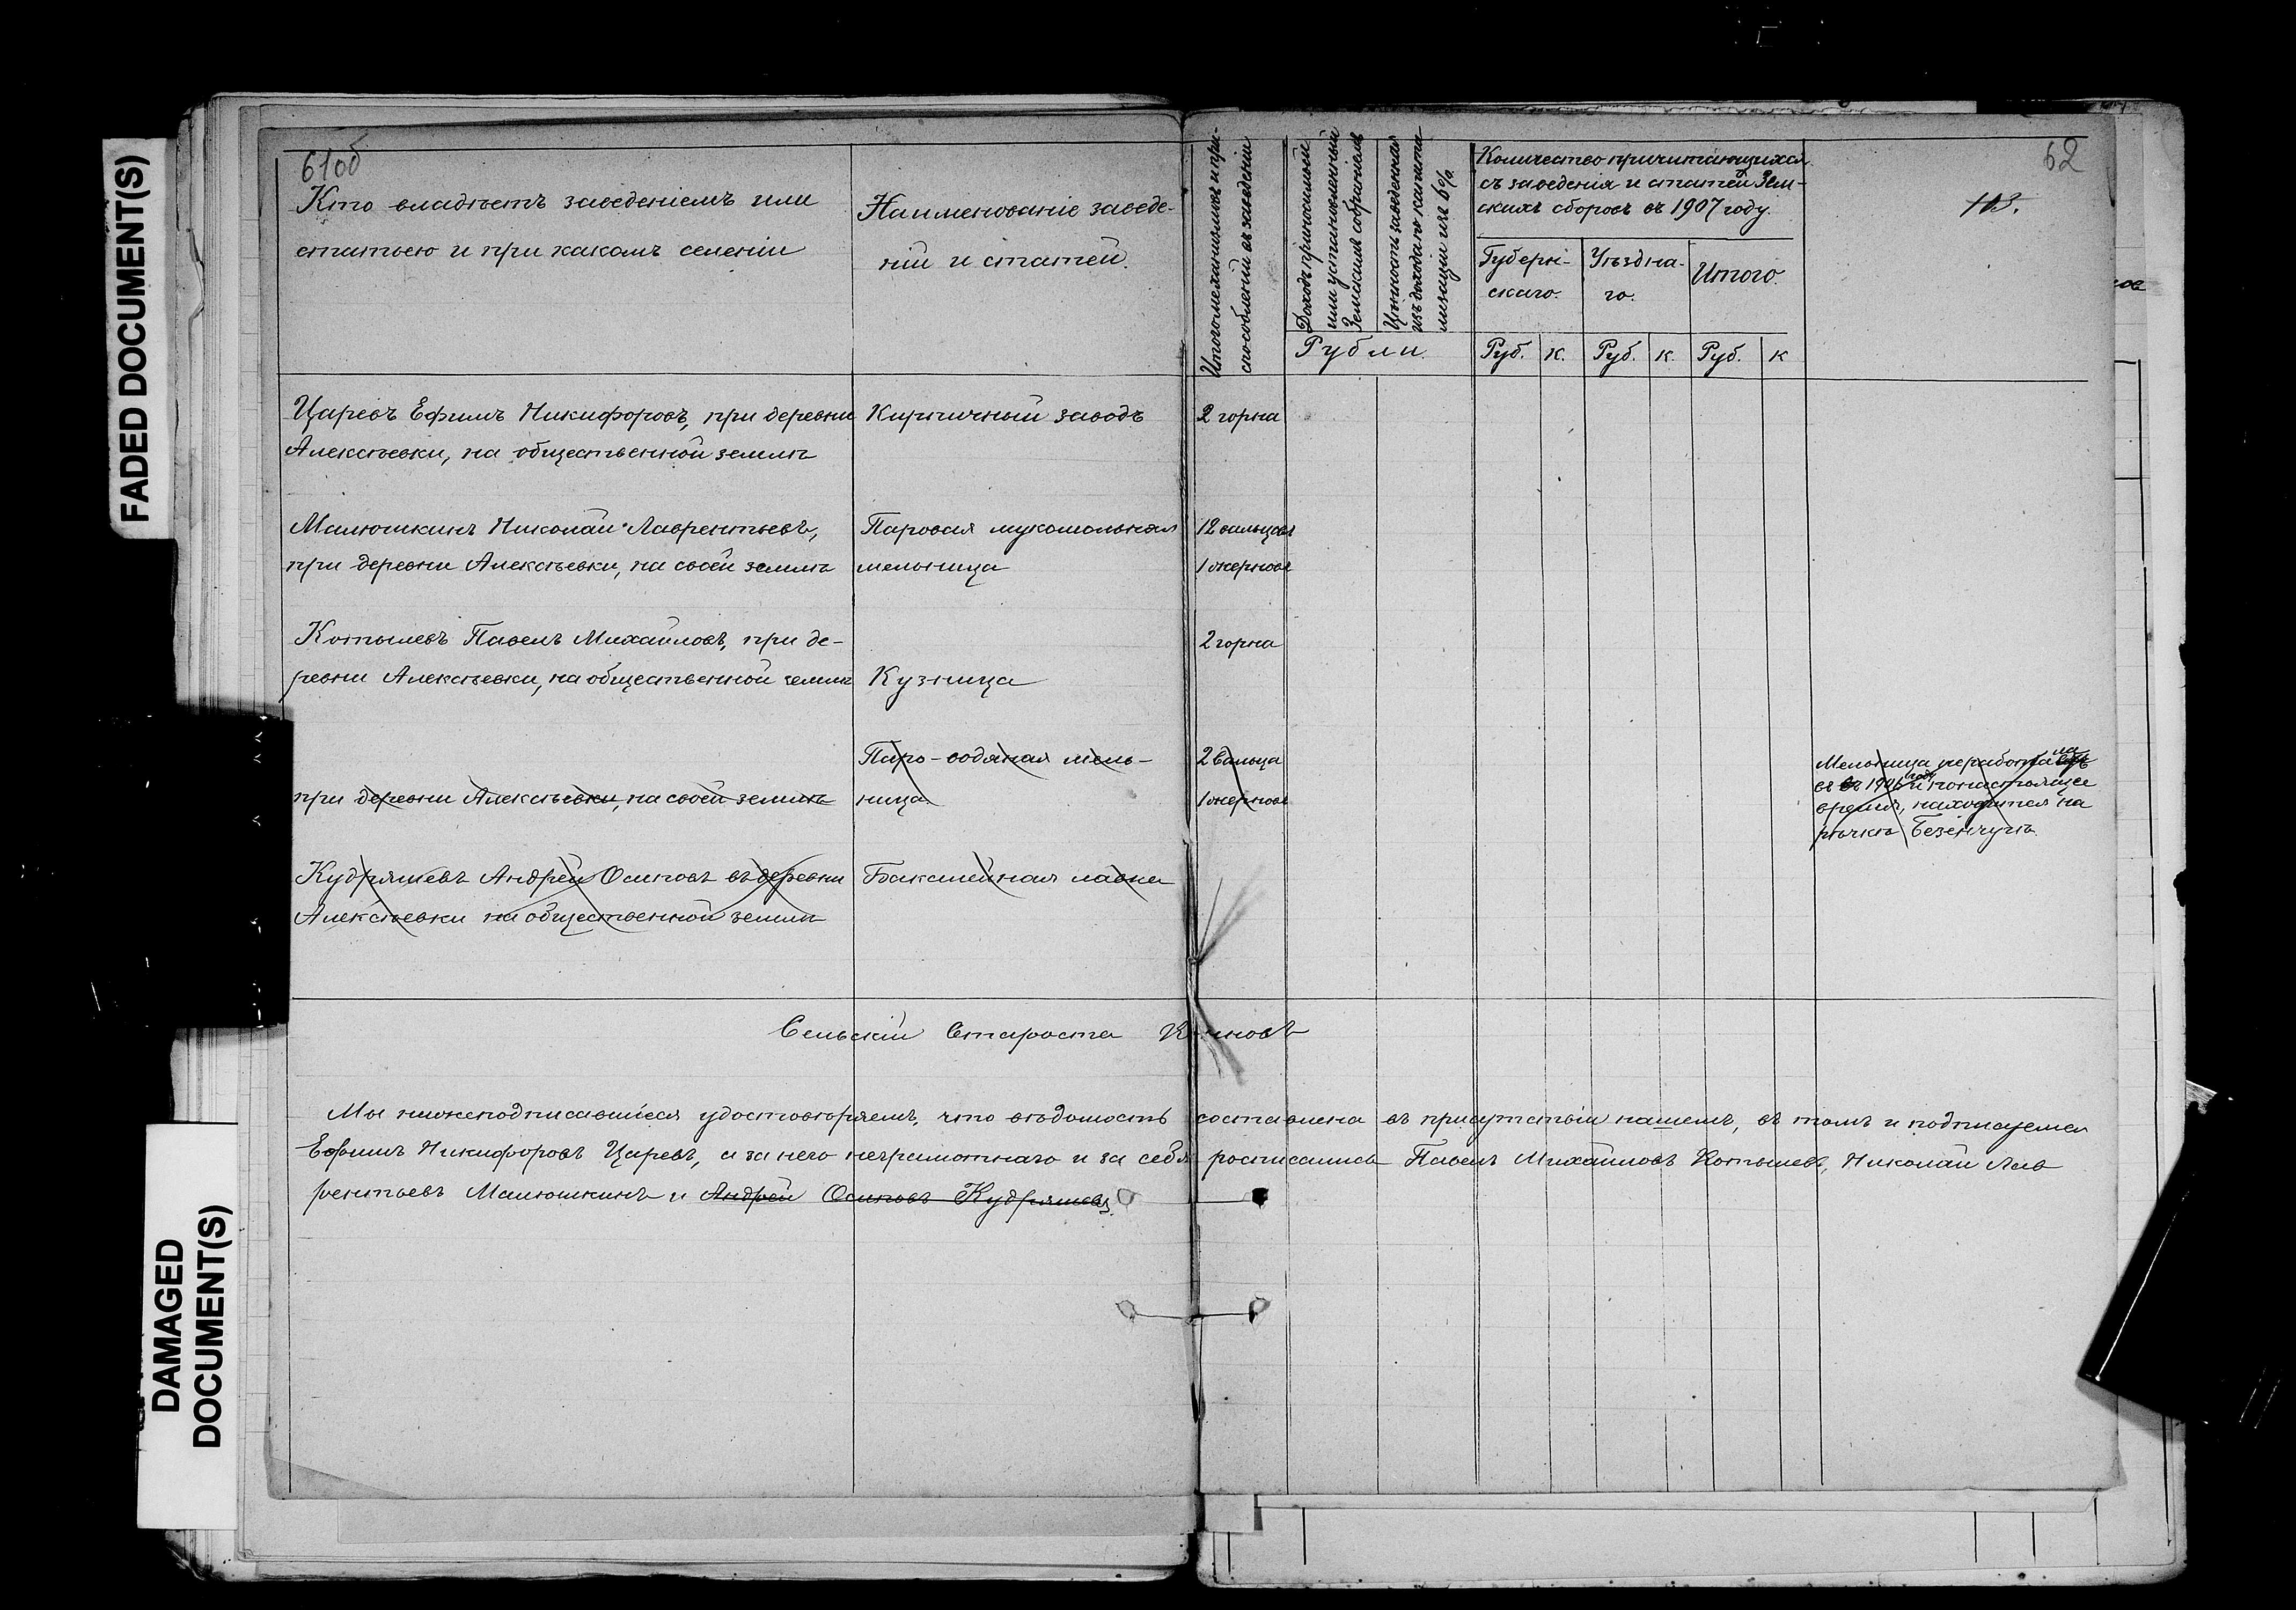 FADED DOCUMENT(S)
DAMAGED
DOCUMENT(S)
61об
Кто владѣетъ заведеніемъ или
статьею и при какомъ селеніи
Наименованіе заведе-
ній и статей.
способленій въ заведеніи
Доходъ приносимый
или установленный
Земскимъ собраніемъ
Цѣнность заведенія
изъ дохода по капита
лизаціи изъ 6%
Рубли.
Количество причитающихся
съ заведенія и статей Зем-
скихъ сборовъ въ 1907 году.
Губерн-
скаго.
Уѣздна-
го.
Итого.
Руб. К. Руб. К. Руб. К
62
113.
Царевъ Ефимъ Никифоровъ, при деревни
Алексѣевки, на общественной землѣ
Кирпичный заводъ
2 горна
Малюшкинъ Николай Лаврентьевъ,
при деревни Алексѣевки, на своей землѣ
Паровая мукомольная
мельница
12 вальцовъ
1 жерновъ
Котылевъ Павелъ Михайловъ, при де-
ревни Алексѣевки, на общественной землѣ
Кузница
2 горна
при деревни Алексѣевки, на своей землѣ
Паро-водяная мель-
ница
2 вальца
1 жерновъ
Мельница неработала
въ 1906 году и по настоящее
время, находится на
рѣчкѣ Безенчугъ.
Кудряшевъ Андрей Осиповъ въ деревни
Алексѣевки на общественной землѣ
Бакалейная лавка
Сельскій Староста
Мы нижеподписавшіеся удостовѣряемъ, что вѣдомость составлена въ присутствіи нашемъ, въ томъ и подписуемся
Ефимъ Никифоровъ Царевъ, а за него неграмотнаго и за себя росписались Павелъ Михайловъ Котылевъ, Николай Лав
рентьевъ Малюшкинъ и Андрей Осиповъ Кудряшевъ